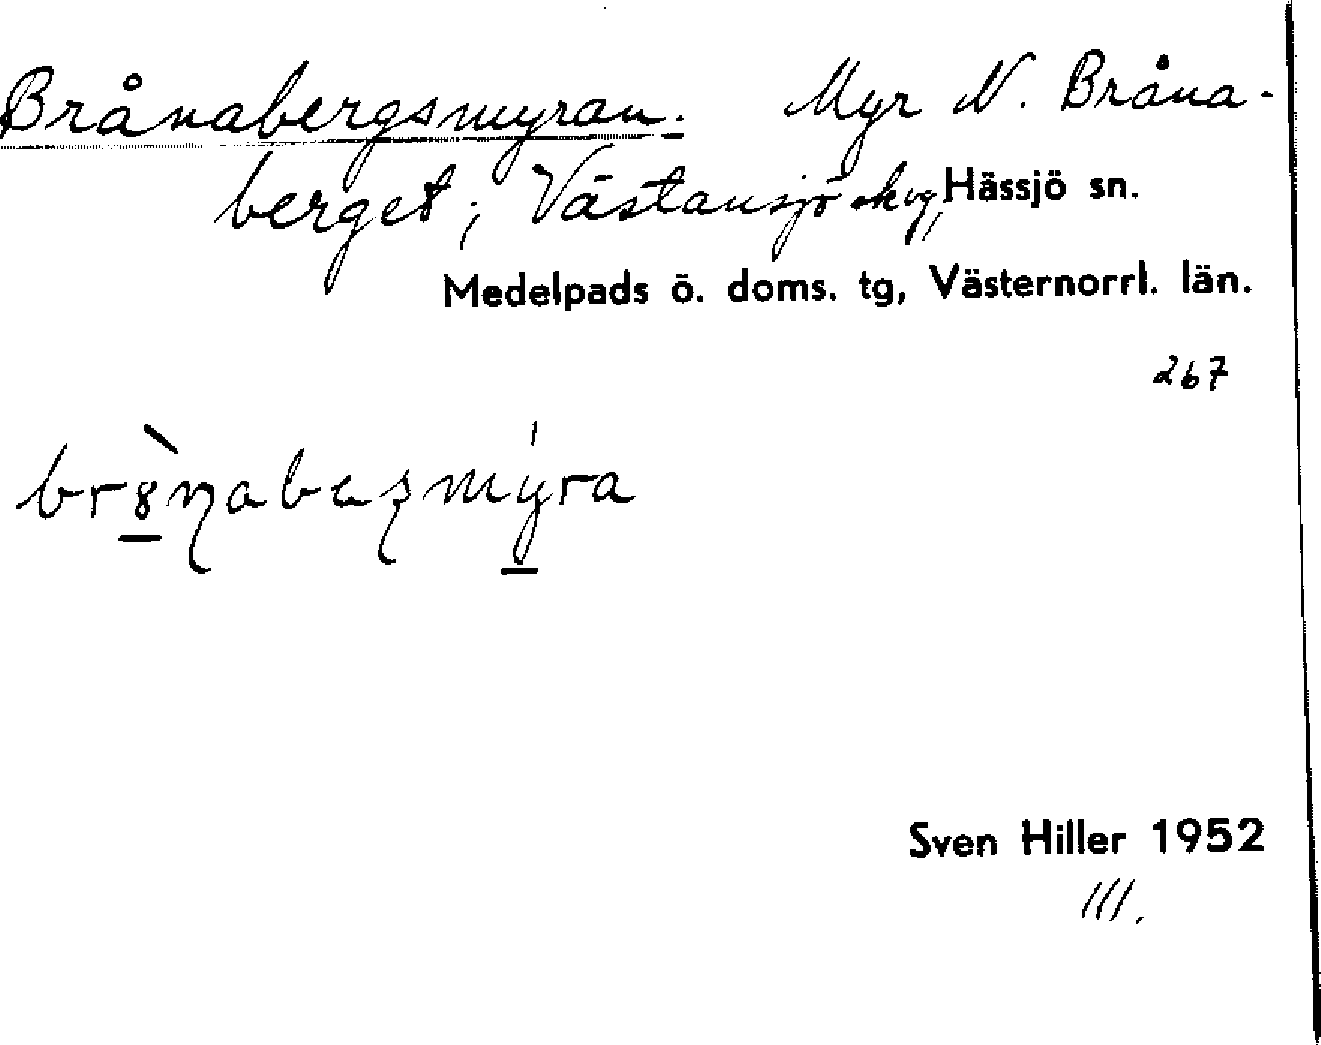 Brånabergsmyran. Myr N. Bråna-
berget; Västansjö skog, Hässjö sn.
Medelpads ö. doms. tg, Västernorrl. län.
267
Sven Hiller 1952
III.